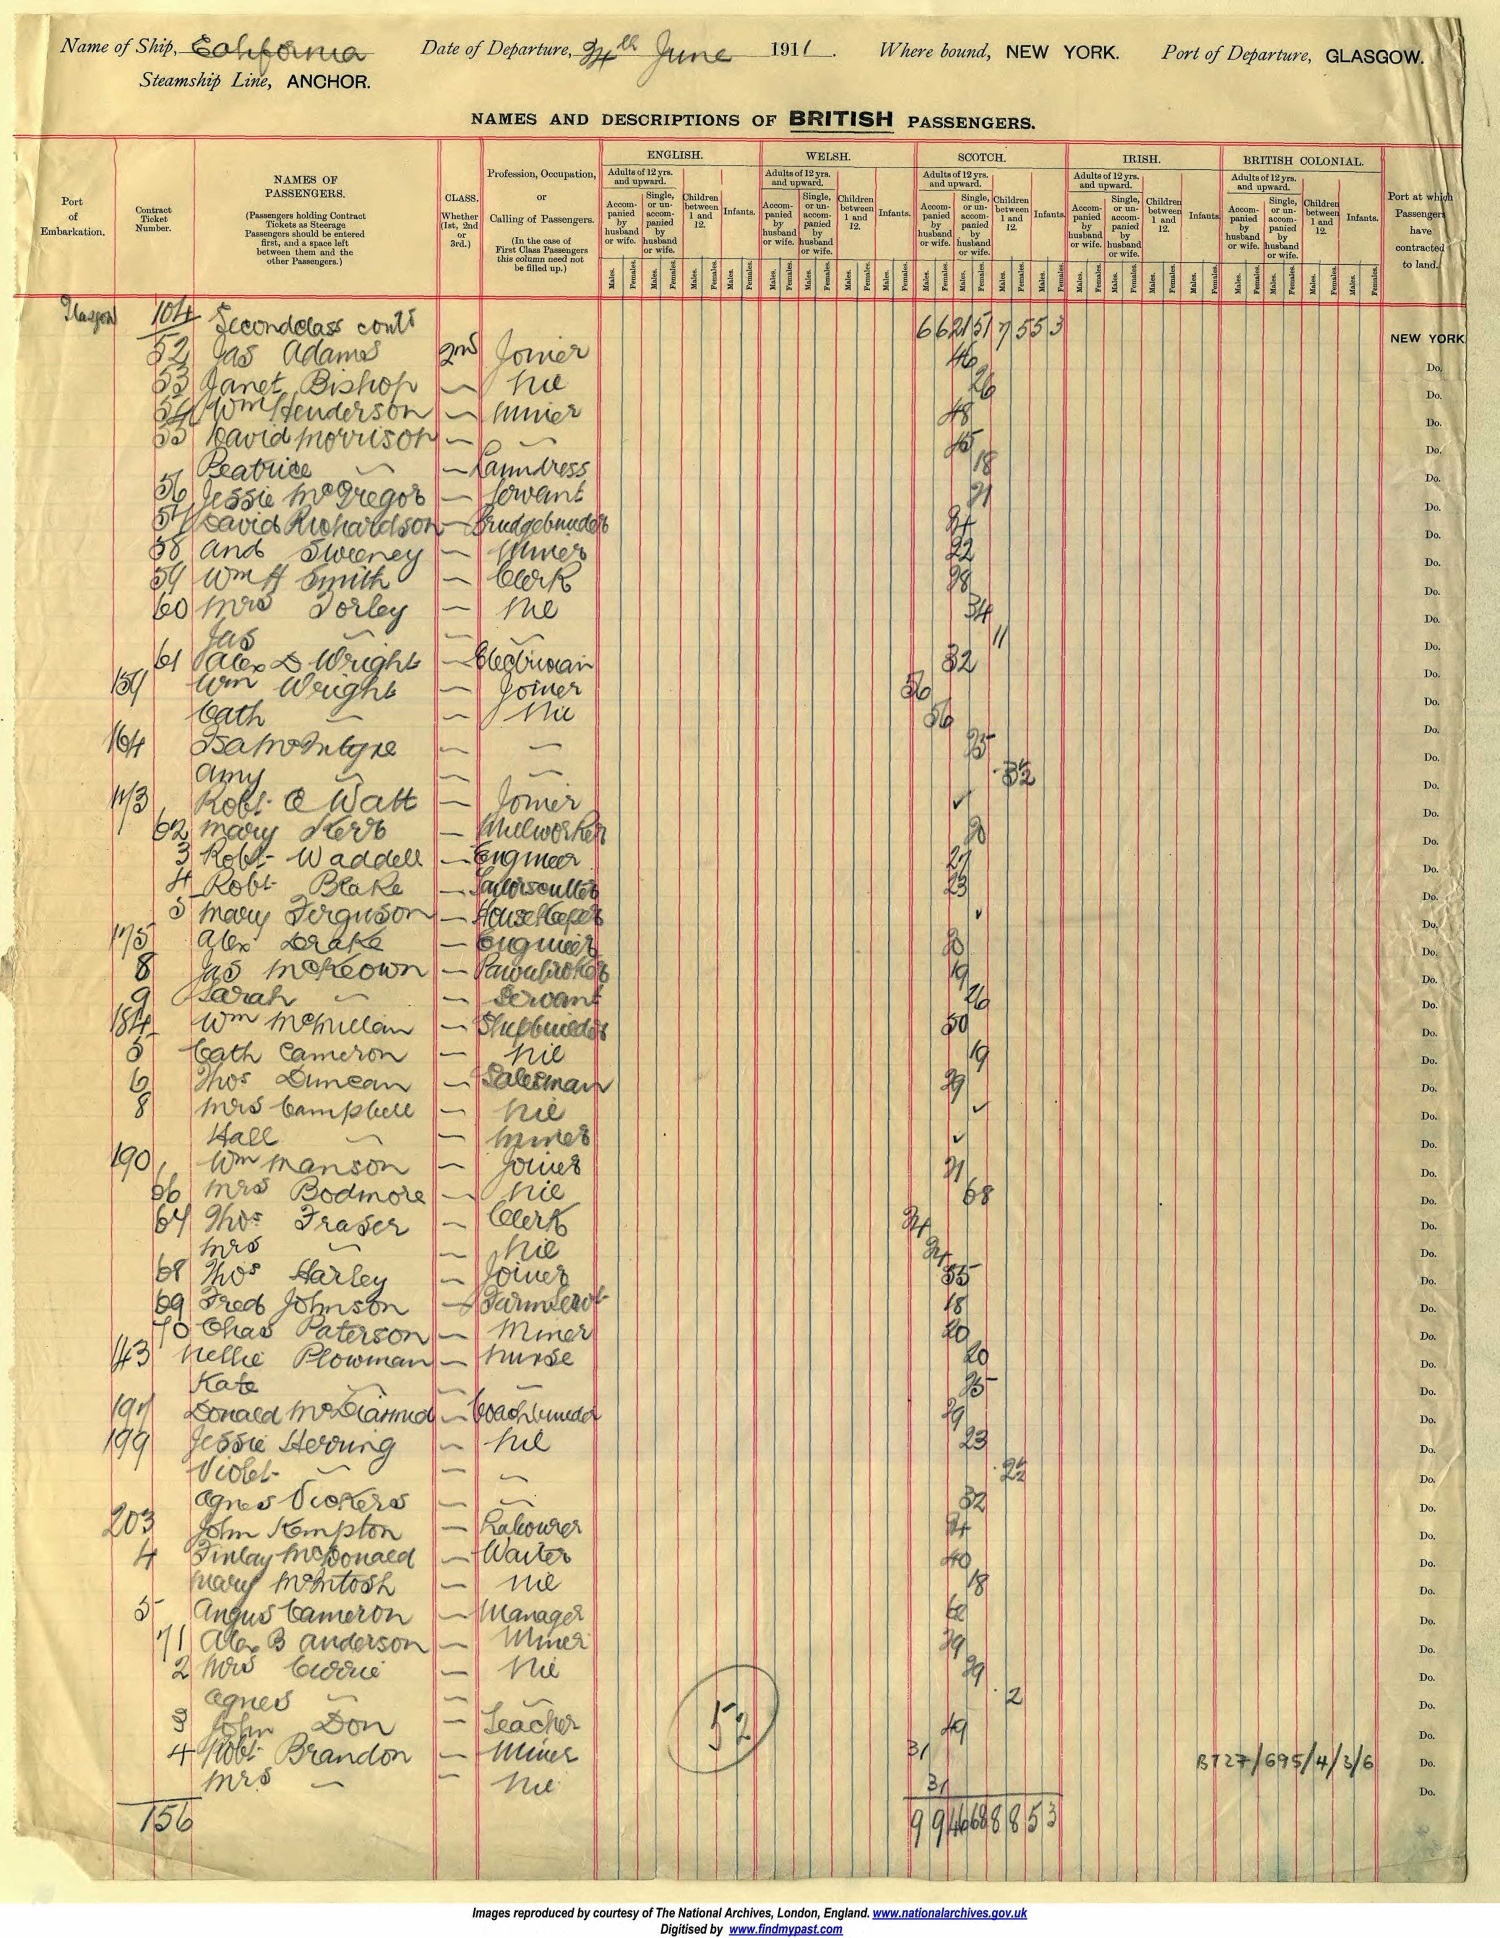 Name of Ship, California Date of Departure, 24th June 1911. Where bound, NEW YORK. Port of Departure, GLASGOW.
Steamship Line, ANCHOR.
NAMES AND DESCRIPTIONS OF BRITISH PASSENGERS.
Port of Embarkation.
Contract Ticket Number.
NAMES OF PASSENGERS.
(Passengers holding Contract Tickets as Steerage Passengers should be entered first, and a space left between them and the other Passengers.)
CLASS. Whether (1st, 2nd or 3rd.)
Profession, Occupation, or Calling of Passengers.
(In the case of First Class Passengers this column need not be filled up.)
ENGLISH. WELSH. SCOTCH. IRISH. BRITISH COLONIAL.
Adults of 12 yrs. and upward. Accompanied by husband or wife. Single, or unaccompanied by husband or wife. Children between 1 and 12. Infants. Males. Females.
Port at which Passengers have contracted to land.
Glasgow 104 Second class contd 6 6 21 51 7 5 5 3
52 Jas Adams 2nd Joiner 46 NEW YORK
53 Janet Bishop — Nil 26 Do.
54 Wm Henderson — Miner 48 Do.
55 David Morrison — — 45 Do.
Beatrice — — Laundress 18 Do.
56 Jessie McGregor — Servant 21 Do.
57 David Richardson — Bridgebuilder 24 Do.
58 And Sweeney — Miner 22 Do.
59 Wm H Smith — Clerk 28 Do.
60 Mrs Torley — Nil 34 Do.
Jas — — — 11 Do.
61 Alex D Wright — Electrician 32 Do.
159 Wm Wright — Joiner 56 Do.
Cath — — Nil 56 Do.
164 Isa McIntyre — — 25 Do.
Amy — — — Do.
173 Robt Watt — Joiner ✓ Do.
62 Mary Kerr — Millworker 20 Do.
3 Robt Waddell — Engineer 27 Do.
4 Robt Blake — 23 Do.
5 Mary Ferguson — Housekeeper ✓ Do.
175 Alex Drake — Engineer 20 Do.
8 Jas McKeown — Pawnbroker 19 Do.
9 Sarah — — Servant 26 Do.
184 Wm McMillan — Shipbuilder 50 Do.
5 Cath Cameron — Nil 19 Do.
6 Thos Duncan — Salesman 29 Do.
8 Mrs Campbell — Nil ✓ Do.
Hall — — Miner ✓ Do.
190 Wm Manson — Joiner 21 Do.
66 Mrs Bodmore — Nil 68 Do.
67 Thos Fraser — Clerk 24 Do.
Mrs — — Nil 24 Do.
68 Thos Harley — Joiner 55 Do.
69 Fred Johnson — Farm Servt 18 Do.
70 Chas Paterson — Miner 20 Do.
143 Nellie Plowman — Nurse 20 Do.
Kate — — — 25 Do.
197 Donald McDiarmid — Coachbuilder 29 Do.
199 Jessie Herring — Nil 23 Do.
Violet — — — Do.
Agnes Vickers — — 32 Do.
203 John Kempton — Labourer 24 Do.
4 Finlay McDonald — Waiter 40 Do.
Mary McIntosh — Nil 18 Do.
5 Angus Cameron — Manager 62 Do.
71 Alex B Anderson — Miner 29 Do.
2 Mrs Currie — Nil 29 Do.
Agnes — — — 2 Do.
3 John Don — Teacher 49 Do.
4 Robt Brandon — Miner 31 BT27/695/4/3/6 Do.
Mrs — — Nil 31 Do.
52
156 9 9 8 8 5 3
Images reproduced by courtesy of The National Archives, London, England. www.nationalarchives.gov.uk
Digitised by www.findmypast.com